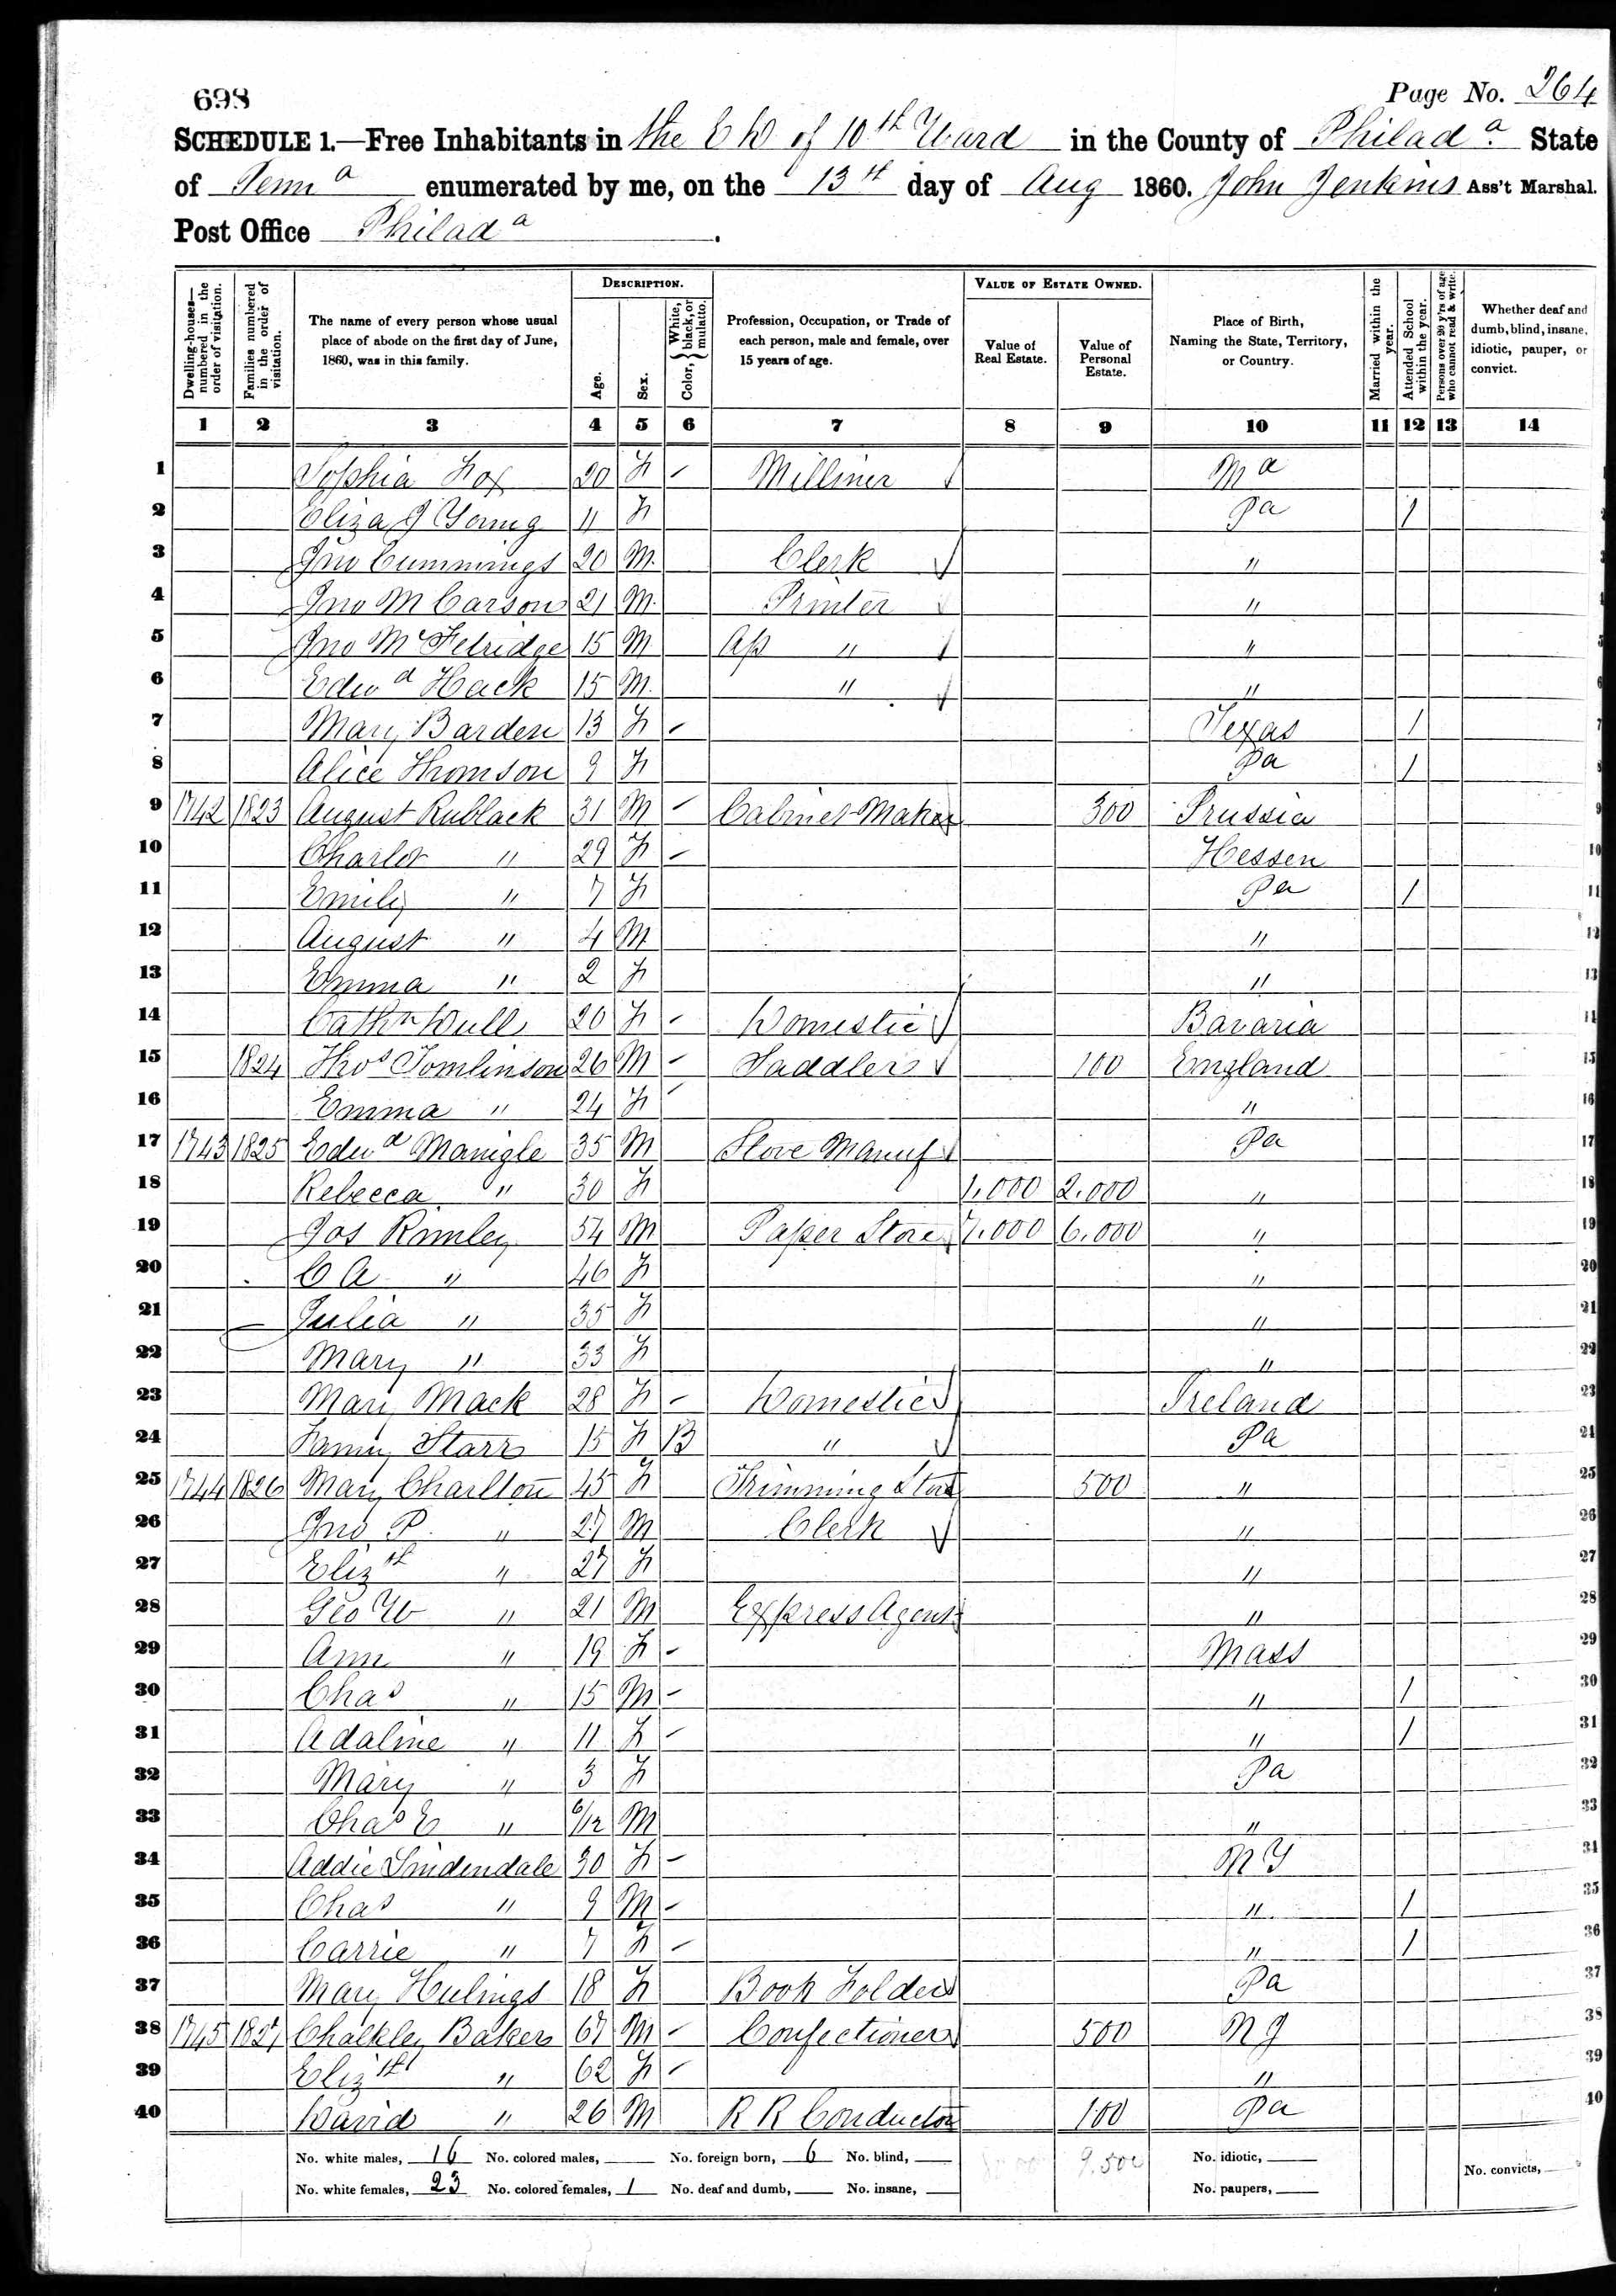 698
Page No. 264
SCHEDULE 1.—Free Inhabitants in the E D of 10th Ward in the County of Philada. State
of Penna enumerated by me, on the 13th day of Aug 1860. John Jenkins Ass't Marshal.
Post Office Philada.
DESCRIPTION. VALUE OF ESTATE OWNED.
Dwelling-houses—numbered in the order of visitation. Families numbered in the order of visitation. The name of every person whose usual place of abode on the first day of June, 1860, was in this family. Age. Sex. Color, { White, black, or mulatto. Profession, Occupation, or Trade of each person, male and female, over 15 years of age. Value of Real Estate. Value of Personal Estate. Place of Birth, Naming the State, Territory, or Country. Married within the year. Attended School within the year. Persons over 20 y'rs of age who cannot read & write. Whether deaf and dumb, blind, insane, idiotic, pauper, or convict.
1 2 3 4 5 6 7 8 9 10 11 12 13 14
1 Sophia Fox 20 F - Milliner Ma 1
2 Eliza J Young 11 F Pa 1 2
3 Jno Cummings 20 M. Clerk " 3
4 Jno M Carson 21 M. Printer " 4
5 Jno McFetridge 15 M Ap " " 5
6 Edwd Hack 15 M. " " 6
7 Mary Barden 13 F - Texas 1 7
8 Alice Thomson 9 F Pa 1 8
9 1742 1823 August Rublack 31 M - Cabinet Maker 300 Prussia 9
10 Charlot " 29 F - Hessen 10
11 Emily " 7 F Pa 1 11
12 August " 4 M " 12
13 Emma " 2 F " 13
14 Cathn Wull 20 F - Domestic Bavaria 14
15 1824 Thos Tomlinson 26 M - Saddler 100 England 15
16 Emma " 24 F - " 16
17 1743 1825 Edwd Manigle 35 M Stove Manuf Pa 17
18 Rebecca " 30 F 1.000 2.000 " 18
19 Jos Rimley 54 M Paper Store 7.000 6.000 " 19
20 C A " 46 F " 20
21 Julia " 35 F " 21
22 Mary " 33 F " 22
23 Mary Mack 28 F - Domestic Ireland 23
24 Fanny Starr 15 F B " Pa 24
25 1744 1826 Mary Charlton 45 F Trimming Store 500 " 25
26 Jno P. " 27 M Clerk " 26
27 Elizth " 27 F " 27
28 Geo W " 21 M Express Agent " 28
29 Ann " 19 F - Mass 29
30 Chas " 15 M - " 1 30
31 Adaline " 11 F - " 1 31
32 Mary " 3 F Pa 32
33 Chas E " 6/12 M " 33
34 Addie Lindendale 30 F - N Y 34
35 Chas " 9 M - " 1 35
36 Carrie " 7 F - " 1 36
37 Mary Hulings 18 F Book Folder Pa 37
38 1745 1827 Chalkley Baker 67 M - Confectioner 500 N J 38
39 Elizth " 62 F - " 39
40 David " 26 M R R Conductor 100 Pa 40
No. white males, 16 No. colored males, No. foreign born, 6 No. blind, 9.500 No. idiotic, No. convicts,
No. white females, 23 No. colored females, 1 No. deaf and dumb, No. insane, No. paupers,